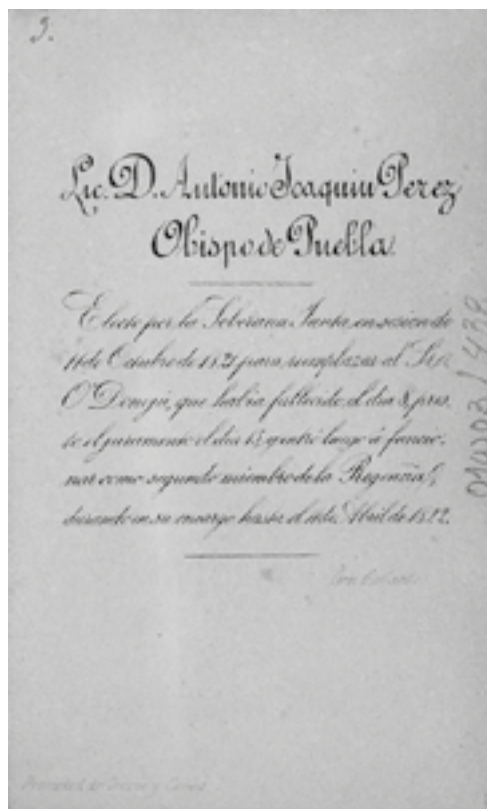 3.
Lic. D. Antonio Joaquin Perez
Obispo de Puebla.
Electo por la Soberana Junta, en sesion de
11 de Octubre de 1821 para reemplazar al Sr.
O'Donojú, que habia fallecido el dia 8, pres-
tó el juramento el dia y entró luego á funcio-
nar como segundo miembro de la Regencia,
durando en su encargo hasta el 11 de Abril de 1822.
Propiedad de Cruces y Campa